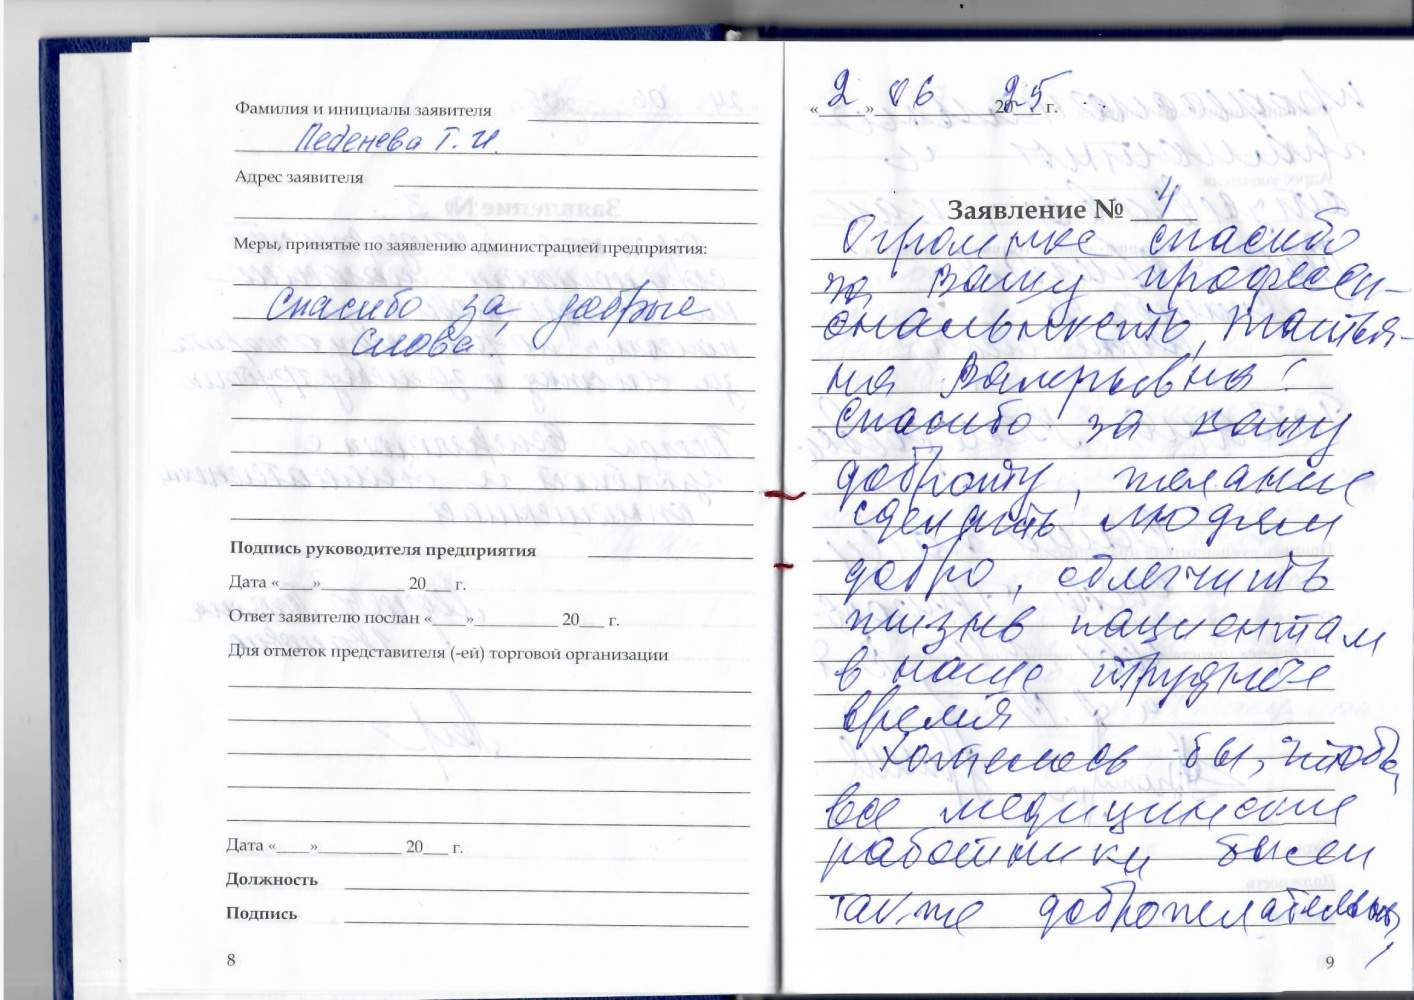 Фамилия и инициалы заявителя
Леденева Т. И.
Адрес заявителя
Меры, принятые по заявлению администрацией предприятия:
Спасибо за добрые
слова!
Подпись руководителя предприятия
Дата «____»__________ 20___ г.
Ответ заявителю послан «____»__________ 20___ г.
Для отметок представителя (-ей) торговой организации
Дата «____»__________ 20___ г.
Должность
Подпись
8
«2» 06 2025 г.
Заявление № 4
Огромное спасибо
за Вашу професси-
ональность, Татья-
на Валерьевна!
Спасибо за вашу
доброту, желание
сделать людям
добро, облегчить
жизнь пациентам
в наше трудное
время
Хотелось бы, чтобы
все медицинские
работники были
также доброжелательны,
9